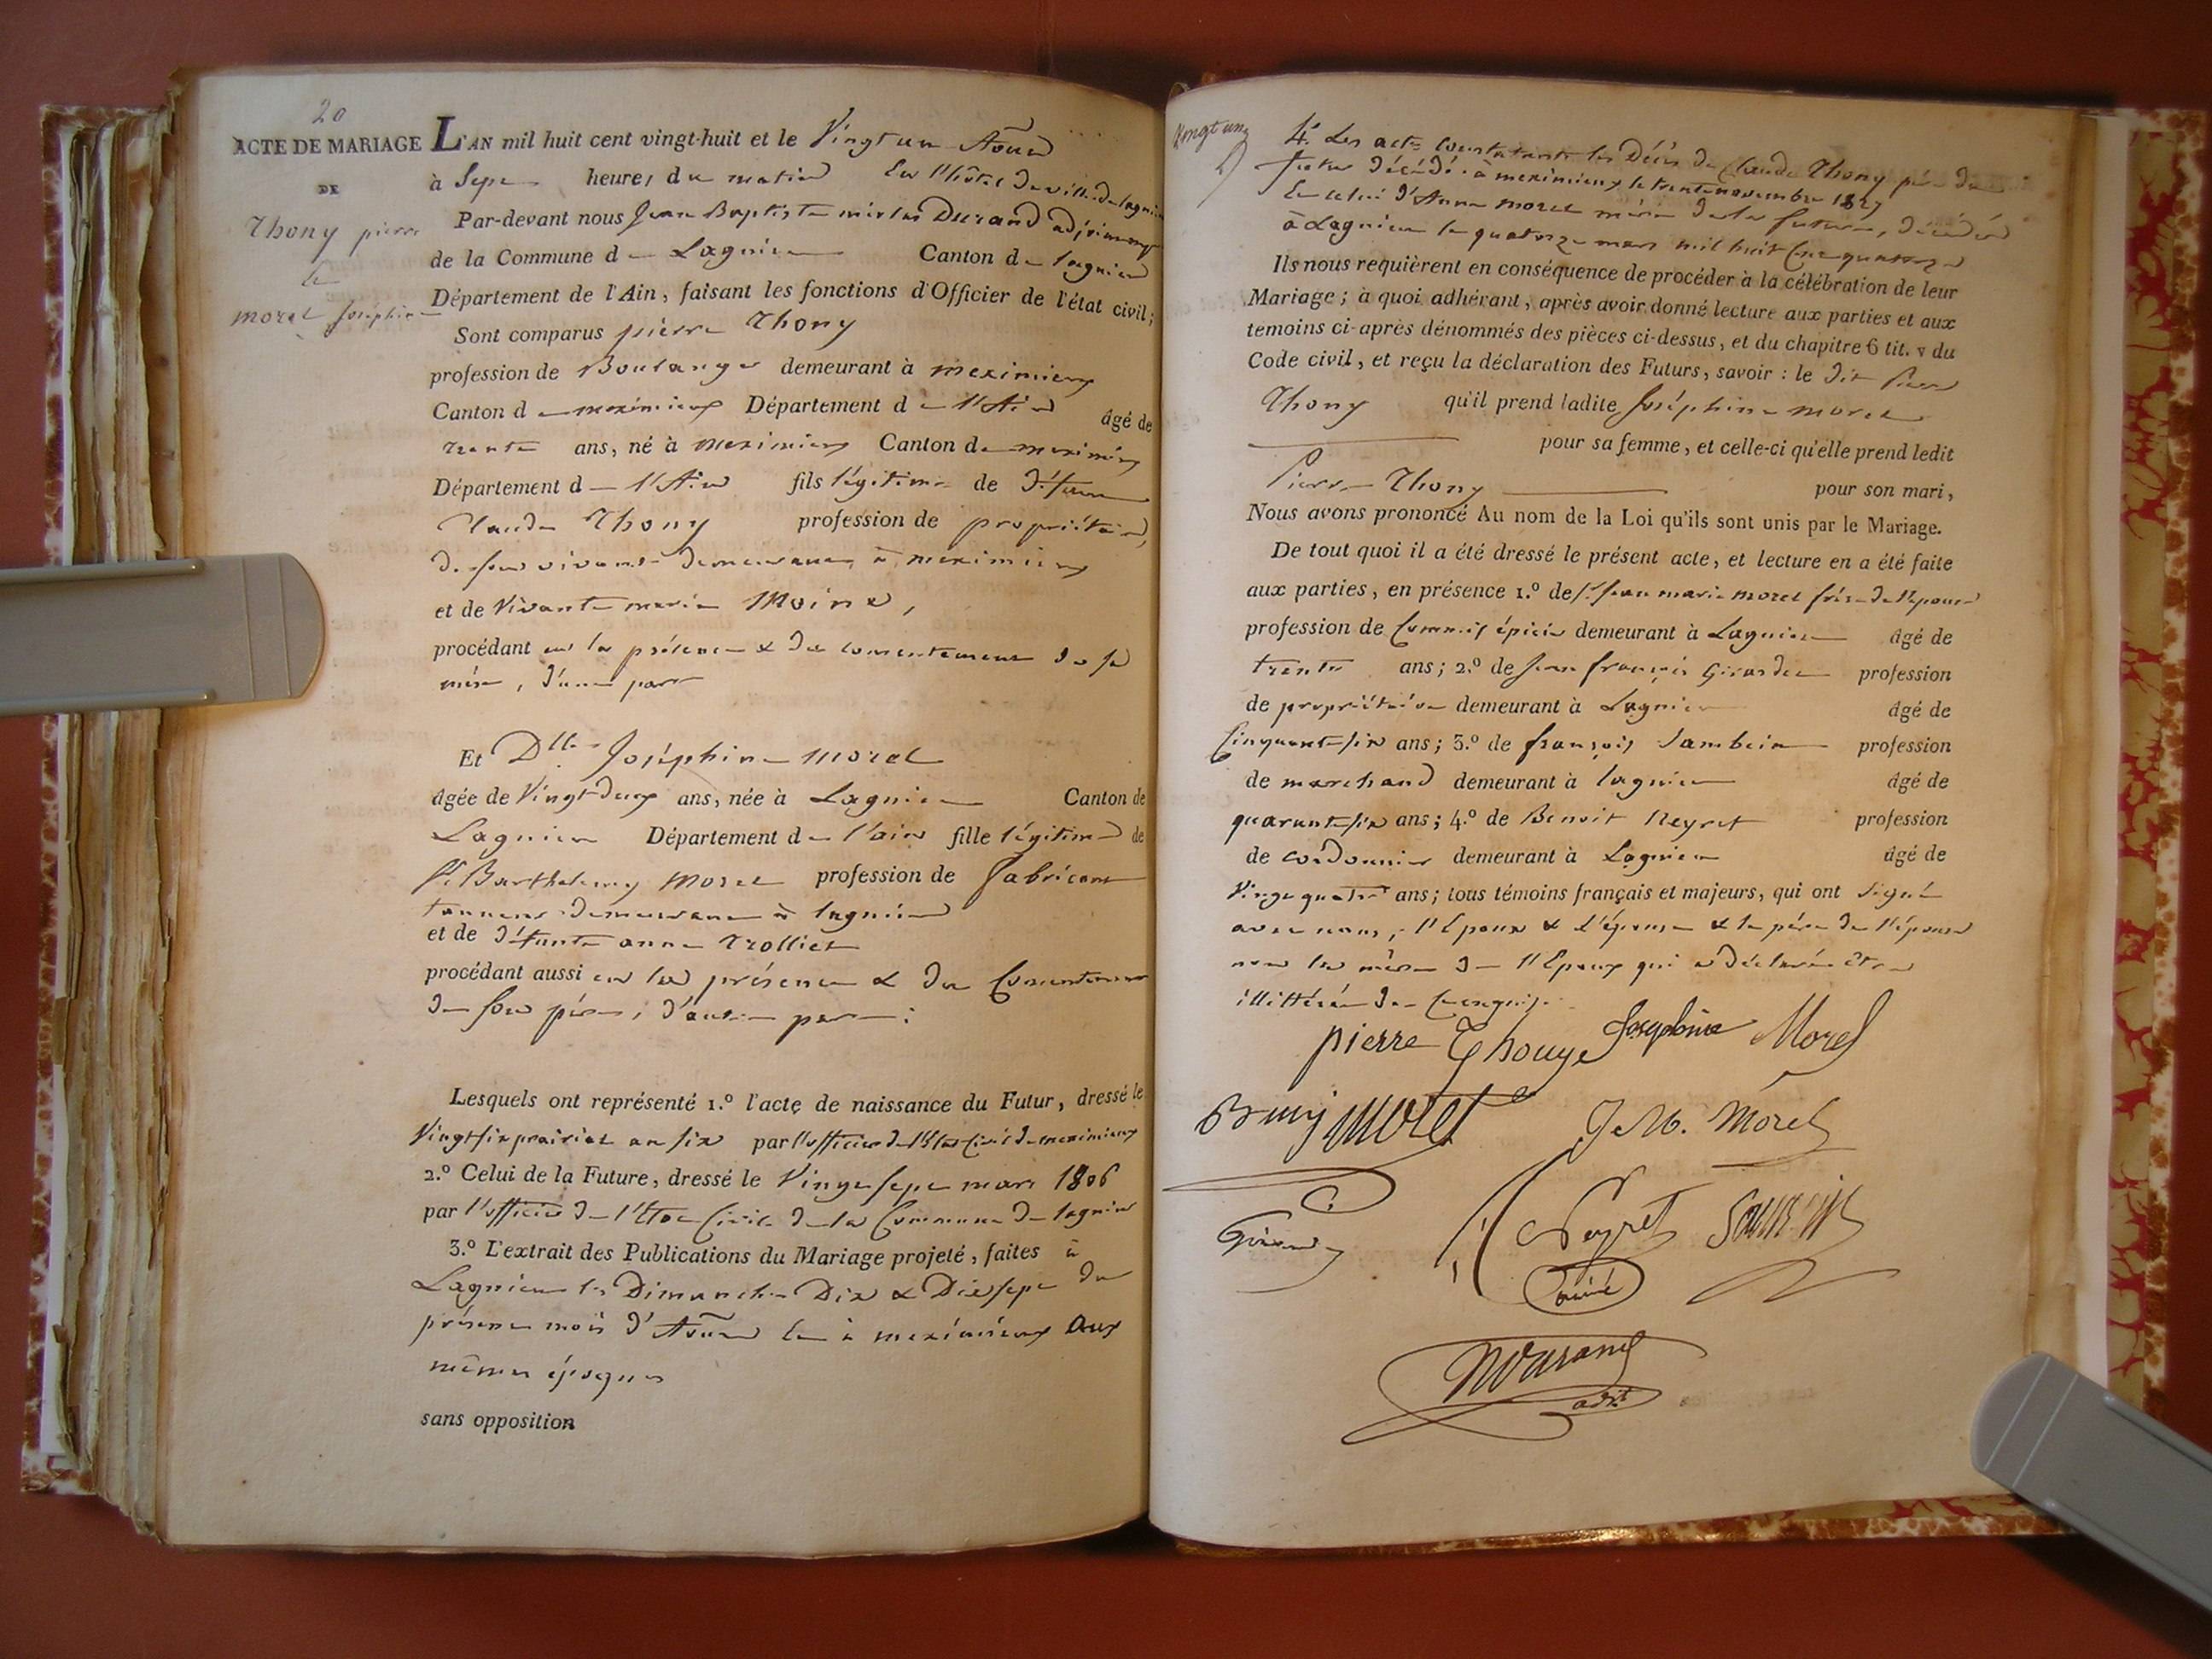 20
ACTE DE MARIAGE
DE
Thony pierre
et
morel Joséphine
L'AN mil huit cent vingt-huit et le Vingt un Aout
à Sept heures du matin En l'hôtel de ville de lagnieu
Par-devant nous Jean Baptiste nicolas Durand adjoint
de la Commune de Lagnieu Canton de lagnieu
Département de l'Ain, faisant les fonctions d'Officier de l'état civil;
Sont comparus pierre Thony
profession de Boulanger demeurant à meximieux
Canton de meximieux Département de l'Ain âgé de
trente ans, né à meximieux Canton de meximieux
Département de l'Ain fils légitime de défunt
Claude Thony profession de propriétaire,
de son vivant demeurant à meximieux
et de Vivante marie Moine,
procédant en la présence & du consentement de sa
mère, d'une part
Et Dlle Joséphine morel
âgée de Vingt deux ans, née à Lagnieu Canton de
Lagnieu Département de l'ain fille légitime de
Sr Barthelemy morel profession de fabricant
tanneur demeurant à lagnieu
et de défunte anne trolliet
procédant aussi en la présence & du Consentement
de son père, d'autre part:
Lesquels ont représenté 1.º l'acte de naissance du Futur, dressé le
Vingt six prairial an six par l'officier de l'Etat Civil de meximieux
2.º Celui de la Future, dressé le Vingt sept mars 1806
par l'officier de l'Etat Civil de la Commune de lagnieu
3.º L'extrait des Publications du Mariage projeté, faites à
Lagnieu les Dimanches Dix & Dix sept du
présent mois d'Aout Et à meximieux aux
mêmes époques
sans opposition
Vingt un
4.º Les actes constatants les Décès de Claude Thony père du
futur décédé à meximieux le trente novembre 1827
Et celui d'Anne morel mère de la future, décédée
à Lagnieu le quatorze mars mil huit Cent quatorze
Ils nous requièrent en conséquence de procéder à la célébration de leur
Mariage; à quoi adhérant, après avoir donné lecture aux parties et aux
témoins ci-après dénommés des pièces ci-dessus, et du chapitre 6 tit. v du
Code civil, et reçu la déclaration des Futurs, savoir : le dit Pierre
Thony qu'il prend ladite Joséphine morel
pour sa femme, et celle-ci qu'elle prend ledit
Pierre Thony pour son mari,
Nous avons prononcé Au nom de la Loi qu'ils sont unis par le Mariage.
De tout quoi il a été dressé le présent acte, et lecture en a été faite
aux parties, en présence 1.º de Sr Jean marie morel frère de l'épouse
profession de Commis épicier demeurant à Lagnieu âgé de
trente ans; 2.º de Jean françois Girardet profession
de propriétaire demeurant à Lagnieu âgé de
Cinquante six ans; 3.º de françois profession
de marchand demeurant à lagnieu âgé de
quarante six ans; 4.º de Benoit Neyret profession
de cordonnier demeurant à Lagnieu âgé de
Vingt quatre ans; tous témoins français et majeurs, qui ont signé
avec nous, l'Epoux & l'épouse & le père de l'épouse
non la mère de l'Epoux qui a déclaré être
illittérée de ce enquise.
pierre Thouye Josephine Morel
Bmy Morel J. M. Morel
Neyret
ainé
NDurand
adjt